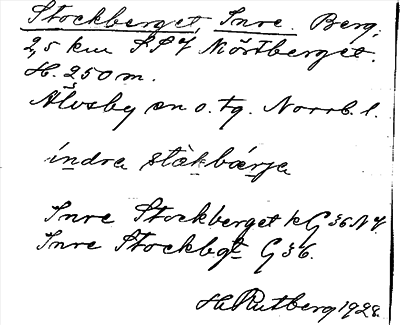 Stockberget, Inre. Berg.
2,5 km SSV Mörtberget.
H. 250 m.
Älvsby sn o. tg. Norrb. l.
indra stàkbærja
Inre Stockberget kG 36 NV.
Inre Stockbgt G 36.
H. Rutberg 1928.